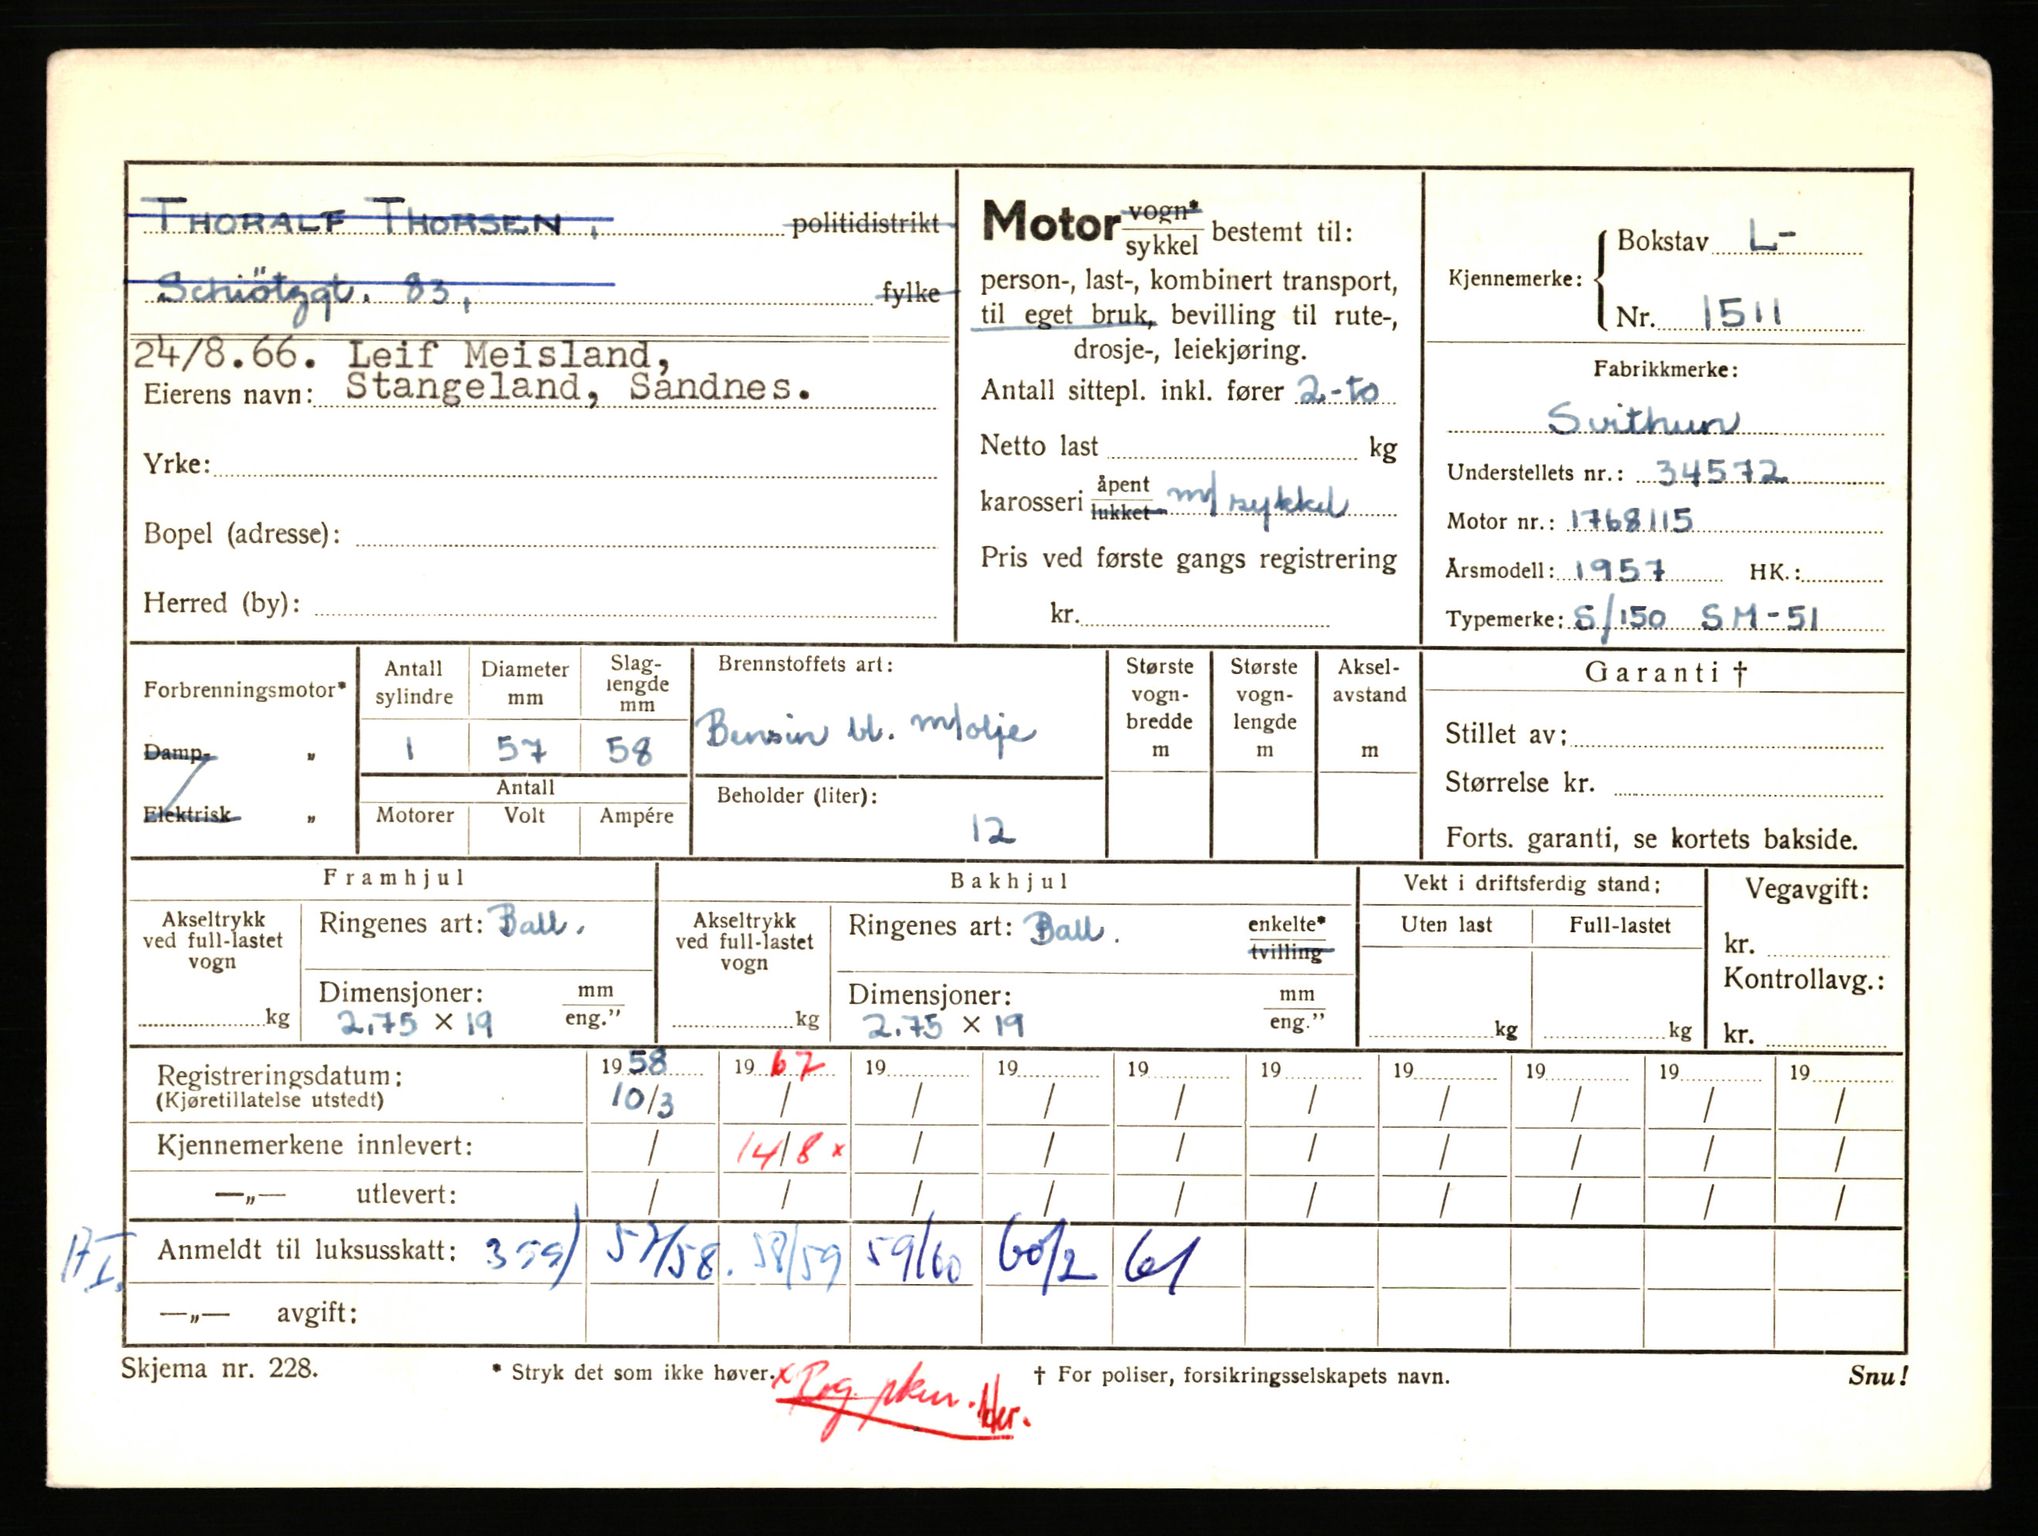 THORALF THORSEN, politidistrikt
Schiötzgt. 83, fylke
24/8.66. Leif Meisland,
Eierens navn: Stangeland, Sandnes.
Yrke:
Bopel (adresse):
Herred (by):
Motor vogn* sykkel bestemt til:
person-, last-, kombinert transport,
til eget bruk, bevilling til rute-,
drosje-, leiekjøring.
Antall sittepl. inkl. fører 2-to
Netto last kg
karosseri åpent lukket m/sykkel
Pris ved første gangs registrering
kr.
Kjennemerke: Bokstav L-
Nr. 1511
Fabrikkmerke:
Svithun
Understellets nr.: 34572
Motor nr.: 1768115
Årsmodell: 1957 HK.:
Typemerke: S/150 SM-51
Forbrenningsmotor*
Damp- „
Elektrisk „
Antall sylindre
1
Diameter mm
57
Slag-lengde mm
58
Antall
Motorer Volt Ampére
Brennstoffets art:
Bensin bl. m/olje
Beholder (liter):
12
Største vogn-bredde m
Største vogn-lengde m
Aksel-avstand m
Garanti †
Stillet av:
Størrelse kr.
Forts. garanti, se kortets bakside.
Framhjul
Akseltrykk ved full-lastet vogn
kg
Ringenes art: Ball.
Dimensjoner: mm
2.75 x 19 eng."
Bakhjul
Akseltrykk ved full-lastet vogn
kg
Ringenes art: Ball. enkelte* tvilling
Dimensjoner: mm
2.75 x 19 eng."
Vekt i driftsferdig stand:
Uten last Full-lastet
kg kg
Vegavgift:
kr.
Kontrollavg.:
kr.
Registreringsdatum: 1958 1967 19 19 19 19 19 19 19 19
(Kjøretillatelse utstedt) 10/3 / / / / / / / / /
Kjennemerkene innlevert: / 14/8 x / / / / / / / /
—„— utlevert: / / / / / / / / / /
Anmeldt til luksusskatt: 57/58. 58/59 59/60 60/2 61
—„— avgift:
Skjema nr. 228. * Stryk det som ikke høver. † For poliser, forsikringsselskapets navn. Snu!